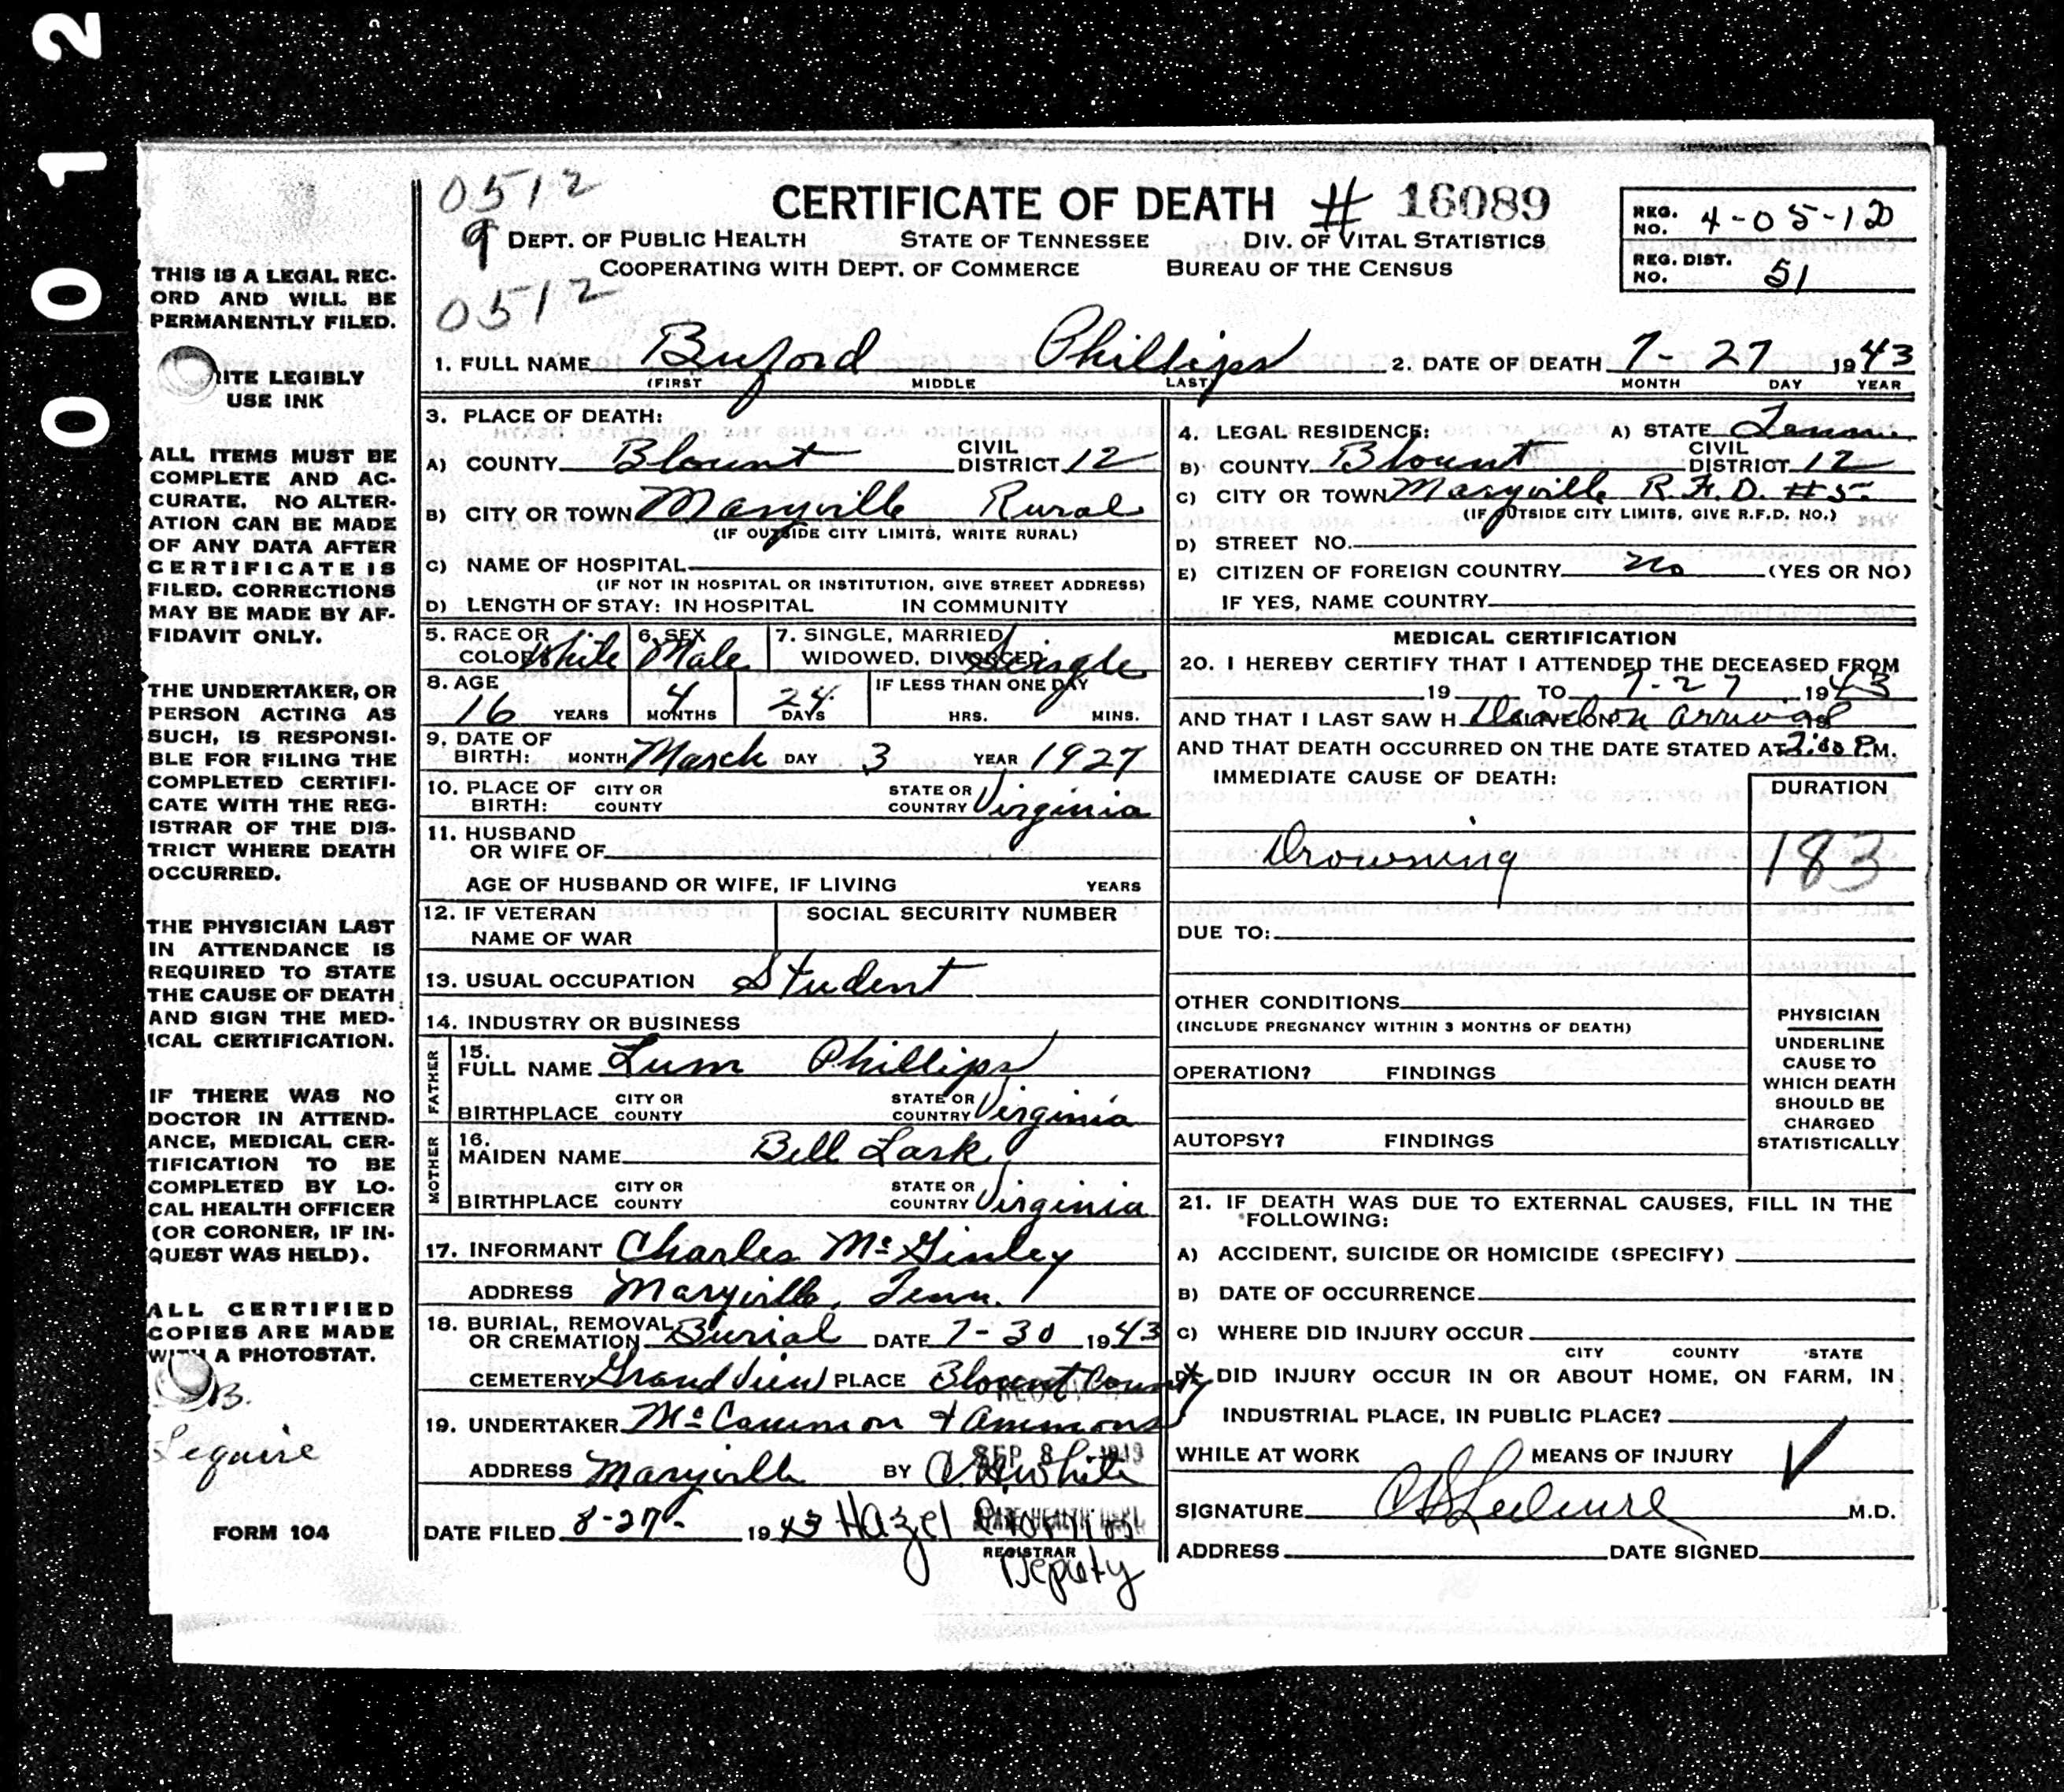 0012
0512
CERTIFICATE OF DEATH # 16089
9 DEPT. OF PUBLIC HEALTH STATE OF TENNESSEE DIV. OF VITAL STATISTICS
COOPERATING WITH DEPT. OF COMMERCE BUREAU OF THE CENSUS
0512
REG. NO. 4-05-12
REG. DIST. NO. 51
THIS IS A LEGAL REC-
ORD AND WILL BE
PERMANENTLY FILED.
ITE LEGIBLY
USE INK
ALL ITEMS MUST BE
COMPLETE AND AC-
CURATE. NO ALTER-
ATION CAN BE MADE
OF ANY DATA AFTER
CERTIFICATE IS
FILED. CORRECTIONS
MAY BE MADE BY AF-
FIDAVIT ONLY.
THE UNDERTAKER, OR
PERSON ACTING AS
SUCH, IS RESPONSI-
BLE FOR FILING THE
COMPLETED CERTIFI-
CATE WITH THE REG-
ISTRAR OF THE DIS-
TRICT WHERE DEATH
OCCURRED.
THE PHYSICIAN LAST
IN ATTENDANCE IS
REQUIRED TO STATE
THE CAUSE OF DEATH
AND SIGN THE MED-
ICAL CERTIFICATION.
IF THERE WAS NO
DOCTOR IN ATTEND-
ANCE, MEDICAL CER-
TIFICATION TO BE
COMPLETED BY LO-
CAL HEALTH OFFICER
(OR CORONER, IF IN-
QUEST WAS HELD).
ALL CERTIFIED
COPIES ARE MADE
WITH A PHOTOSTAT.
B.
Lequire
FORM 104
1. FULL NAME Buford Phillips 2. DATE OF DEATH 7-27 1943
(FIRST MIDDLE LAST) MONTH DAY YEAR
3. PLACE OF DEATH:
A) COUNTY Blount CIVIL DISTRICT 12
B) CITY OR TOWN Maryville Rural
(IF OUTSIDE CITY LIMITS, WRITE RURAL)
C) NAME OF HOSPITAL
(IF NOT IN HOSPITAL OR INSTITUTION, GIVE STREET ADDRESS)
D) LENGTH OF STAY: IN HOSPITAL IN COMMUNITY
5. RACE OR COLOR White 6. SEX Male 7. SINGLE, MARRIED WIDOWED, DIVORCED Single
8. AGE 16 YEARS 4 MONTHS 24 DAYS IF LESS THAN ONE DAY HRS. MINS.
9. DATE OF BIRTH: MONTH March DAY 3 YEAR 1927
10. PLACE OF BIRTH: CITY OR COUNTY STATE OR COUNTRY Virginia
11. HUSBAND OR WIFE OF
AGE OF HUSBAND OR WIFE, IF LIVING YEARS
12. IF VETERAN NAME OF WAR SOCIAL SECURITY NUMBER
13. USUAL OCCUPATION Student
14. INDUSTRY OR BUSINESS
FATHER 15. FULL NAME Lum Phillips
BIRTHPLACE CITY OR COUNTY STATE OR COUNTRY Virginia
MOTHER 16. MAIDEN NAME Bell Lark
BIRTHPLACE CITY OR COUNTY STATE OR COUNTRY Virginia
17. INFORMANT Charles McGinley
ADDRESS Maryville, Tenn.
18. BURIAL, REMOVAL OR CREMATION Burial DATE 7-30 1943
CEMETERY Grand View PLACE Blount County
19. UNDERTAKER McCammon & Ammons
SEP 8
ADDRESS Maryville BY White
DATE FILED 8-27- 1943 Hazel
REGISTRAR
Deputy
4. LEGAL RESIDENCE: A) STATE Tenn
B) COUNTY Blount CIVIL DISTRICT 12
C) CITY OR TOWN Maryville R.F.D. #5
(IF OUTSIDE CITY LIMITS, GIVE R.F.D. NO.)
D) STREET NO.
E) CITIZEN OF FOREIGN COUNTRY no (YES OR NO)
IF YES, NAME COUNTRY
MEDICAL CERTIFICATION
20. I HEREBY CERTIFY THAT I ATTENDED THE DECEASED FROM
19 TO 7-27 1943
AND THAT I LAST SAW H ALIVE ON on arrival
AND THAT DEATH OCCURRED ON THE DATE STATED AT P.M.
IMMEDIATE CAUSE OF DEATH: DURATION
Drowning 183
DUE TO:
OTHER CONDITIONS
(INCLUDE PREGNANCY WITHIN 3 MONTHS OF DEATH)
OPERATION? FINDINGS
AUTOPSY? FINDINGS
PHYSICIAN
UNDERLINE
CAUSE TO
WHICH DEATH
SHOULD BE
CHARGED
STATISTICALLY
21. IF DEATH WAS DUE TO EXTERNAL CAUSES, FILL IN THE
FOLLOWING:
A) ACCIDENT, SUICIDE OR HOMICIDE (SPECIFY)
B) DATE OF OCCURRENCE
C) WHERE DID INJURY OCCUR
CITY COUNTY STATE
DID INJURY OCCUR IN OR ABOUT HOME, ON FARM, IN
INDUSTRIAL PLACE, IN PUBLIC PLACE?
WHILE AT WORK MEANS OF INJURY
SIGNATURE M.D.
ADDRESS DATE SIGNED